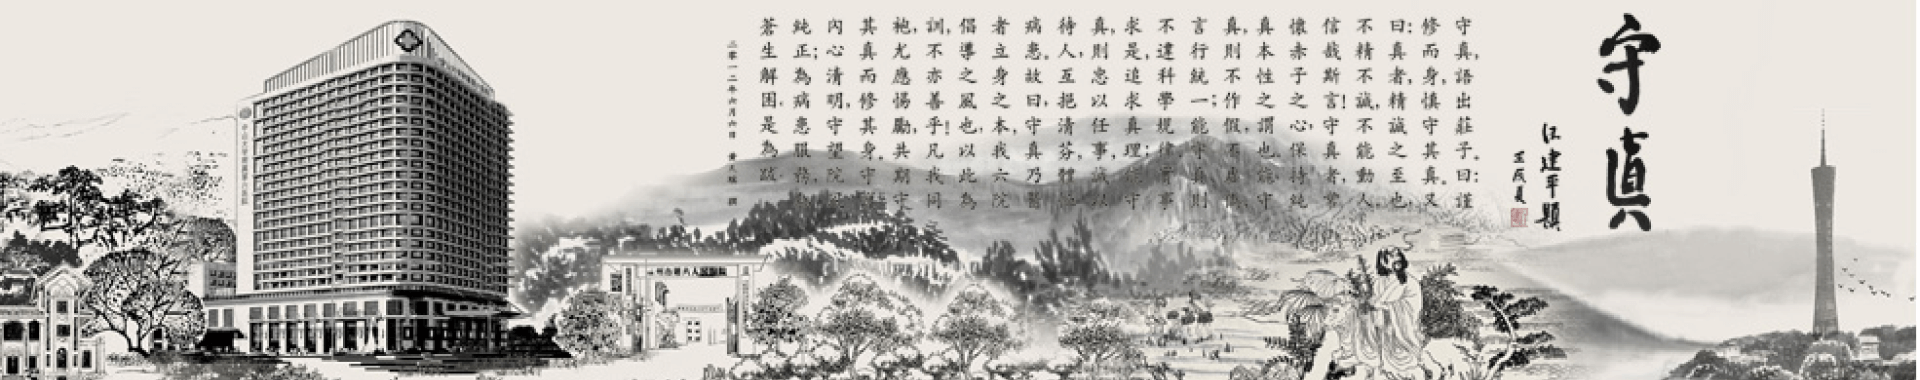 守真
江建平題
壬辰夏
守真,語出莊子。曰:謹
修而身,慎守其真。又
曰:真者,精誠之至也,
不精不誠,不能動人。
信哉斯言!守真者,常
懷赤子之心,保持純
真本性之謂也。能守
真,則不作假,不虛偽
言行統一;能守真,則
不違科學規律,實事
求是,追求真理;能守
真,則忠以任事,誠以
待人,互挹清芬,體恤
病患。故曰,守真乃醫
者立身之本,我六院
倡導之風也,以此為
訓,不亦善乎!凡我同
袍,尤應惕勵,共期守
其真而修其身。守
內心清明,守望院風
純正;為病患服務,為
蒼生解困,是為跋
二零一二年六月六日 黃 撰
中山大學附屬第六醫院